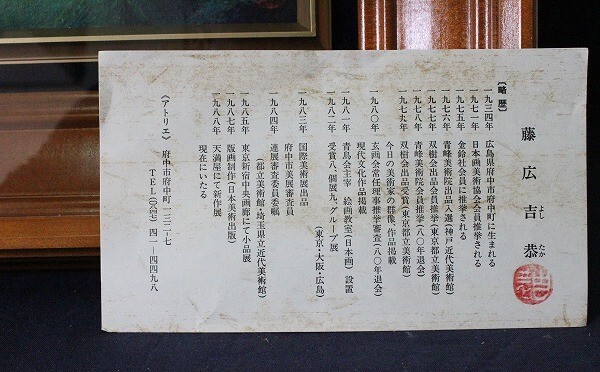 藤広吉恭
よし たか
〔略歴〕
一九三四年 広島県府中市府中町に生まれる
一九七一年 日本画美術協会会員推挙される
一九七五年 金鈴社会員に推挙される
一九七六年 青峰美術院出品入選(神戸近代美術館)
一九七七年 双樹会出品会員推挙(東京都立美術館)
一九七八年 青峰美術院会員推挙(八〇年退会)
一九七九年 双樹会出品受賞(東京都立美術館)
今日の美術家の群像 作品掲載
一九八〇年 玄画会常任理事推挙審査(八〇年退会)
現代文化作品掲載
一九八一年 青鳥会主宰 絵画教室(日本画)設置
一九八二年 受賞八、個展九、グループ展
(東京・大阪・広島)
一九八三年 国際美術展出品
府中市美展審査員
一九八四年 連展審査委員委嘱
(都立美術館・埼玉県立近代美術館)
一九八五年 東京新宿中央画廊にて小品展
一九八七年 版画制作(日本美術出版)
一九八八年 天満屋にて新作展
現在にいたる
《アトリエ》 府中市府中町一三二-七
TEL 四一-四四九八